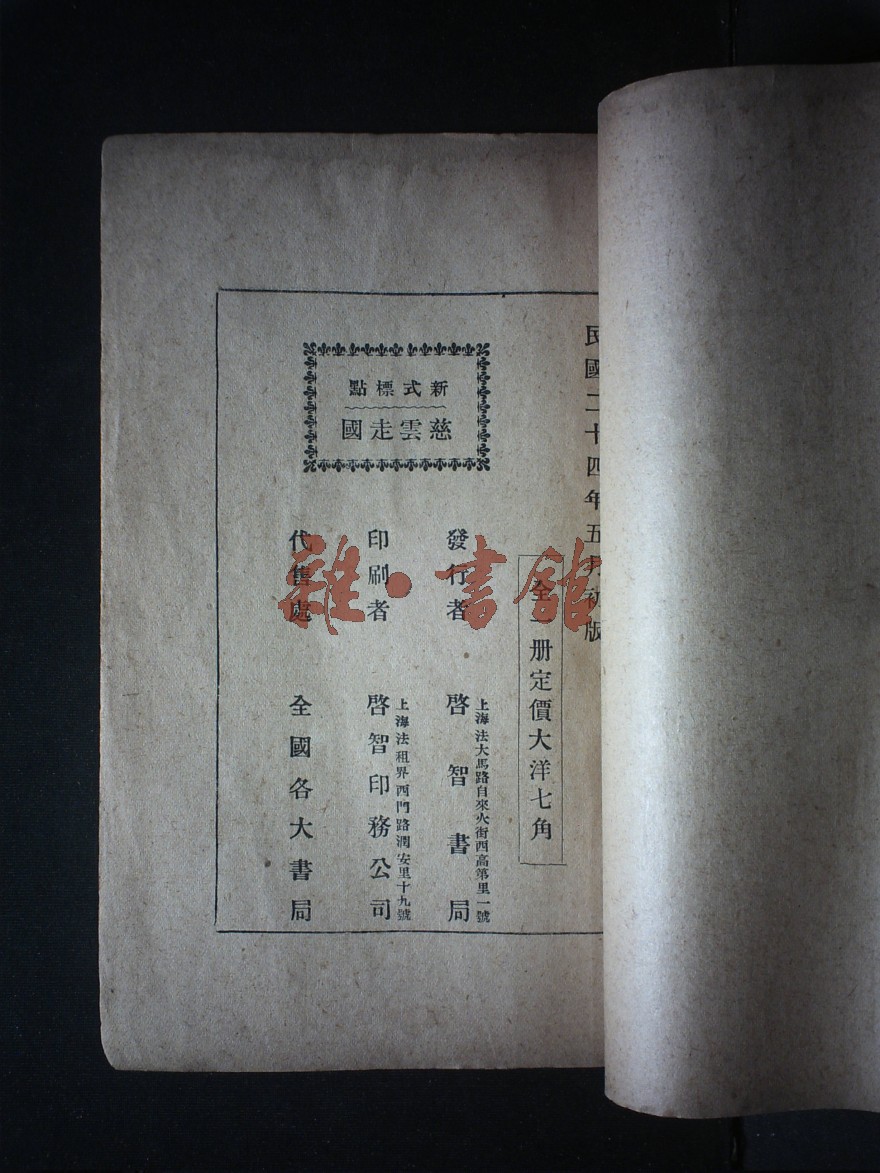 民國二十四年五月初版
全一册定價大洋七角
新式標點
慈雲走國
發行者 啓智書局
上海法大馬路自來火街西高第里一號
印刷者 啓智印務公司
上海法租界西門路潤安里十九號
代售處 全國各大書局
雜·書館